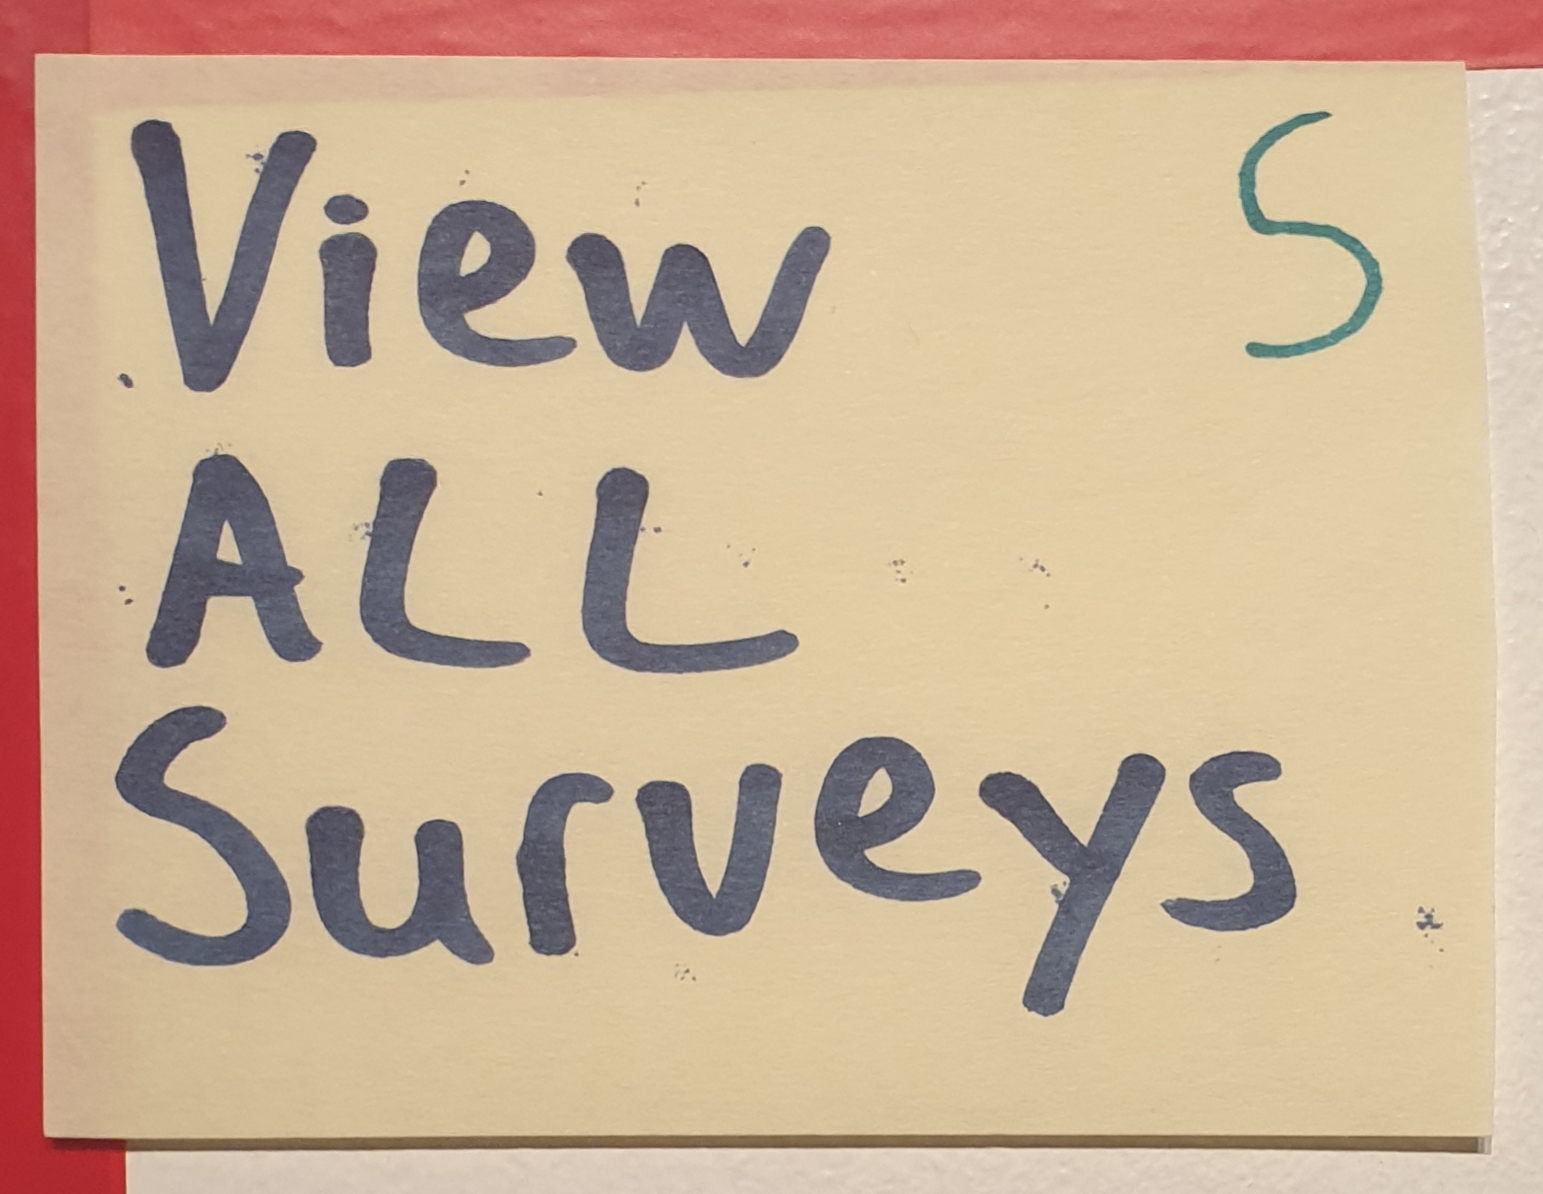 View S
ALL
Surveys